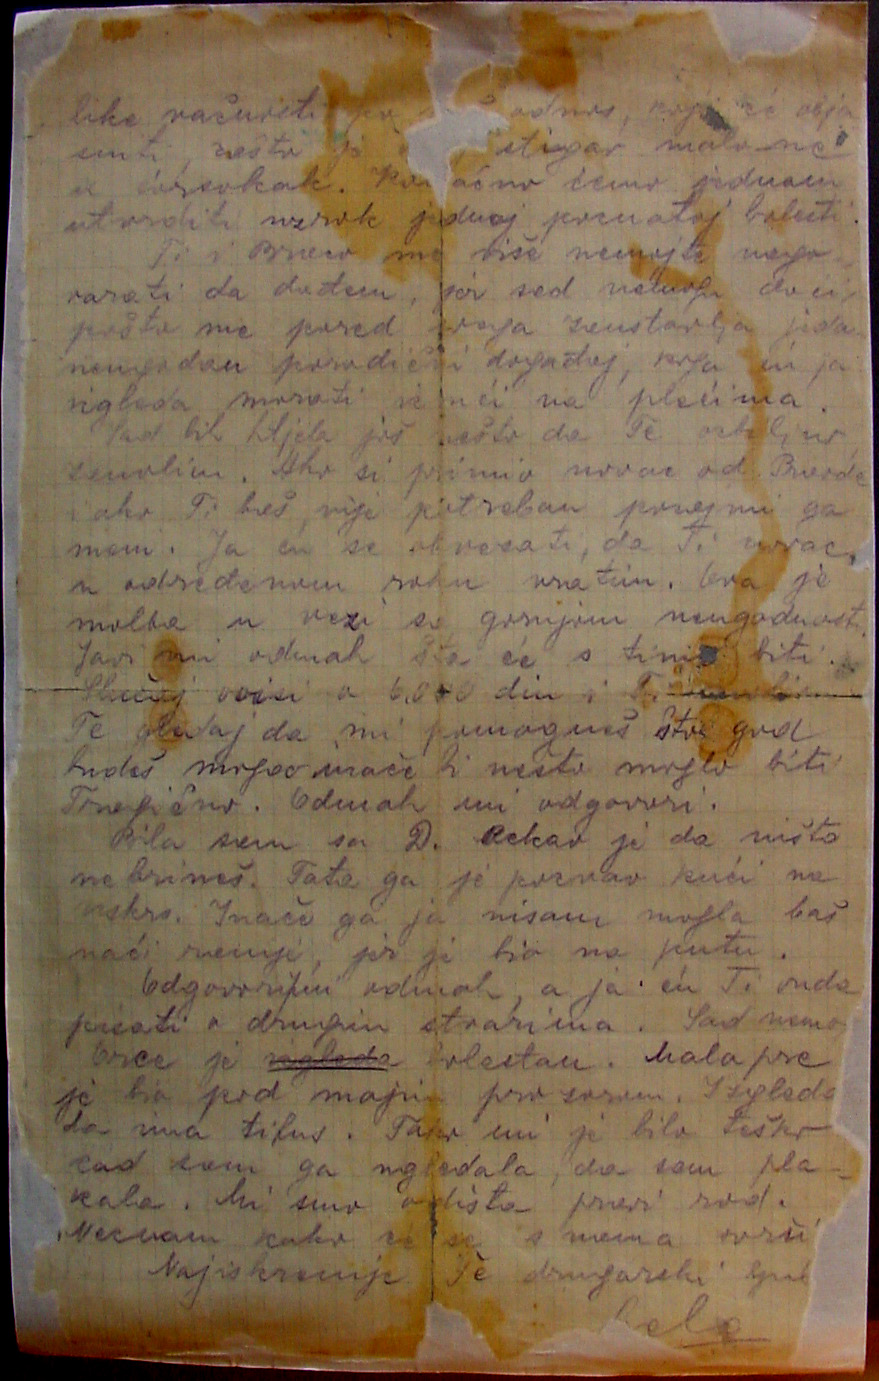 like računati odnos, koji će obja
smiti, zašto je stigao malo ne
u ćorsokak. Konačno ćemo jednom
utvrditi uzrok jednoj poznatoj bolesti.
Ti i Braco me više nemojte nago-
varati da dođem, jer sad nemogu doći,
pošto me pored zaustavlja
neugodan porodični događaj, koga ću ja
izgleda morati na plećima.
Sad bih htjela još nešto da Te ozbiljno
zamolim. Ako si primio novac od
i ako Ti baš nije potreban pozajmi ga
meni. Ja ću se obvezati, da Ti novac,
u određenom roku vratim. Ova je
molba u vezi sa gornjom neugodnosti.
Javi mi odmah šta će s time biti.
Slučaj visi o 6.000 din i
Te gledaj da mi pomogneš što god
budeš mogao inače bi nešto moglo biti
Tragično. Odmah mi odgovori.
Bila sam sa D. Rekao je da ništa
ne brineš. Tata ga je pozvao kući na
uskrs. Inače ga ja nisam mogla baš
naći ranije, jer je bio na putu.
Odgovori mi odmah, a ja ću Ti onda
pisati o drugim stvarima. Sad nemo
je izgleda bolestan. Malo pre
je bio pod mojim prozorom. Izgleda
da ima tifus. Tako mi je bilo teško
kad sam ga ugledala, da sam pla-
kala. Mi smo odista pravi rod.
Neznam kako će se s nama svrši
Najiskrenije Te drugarski